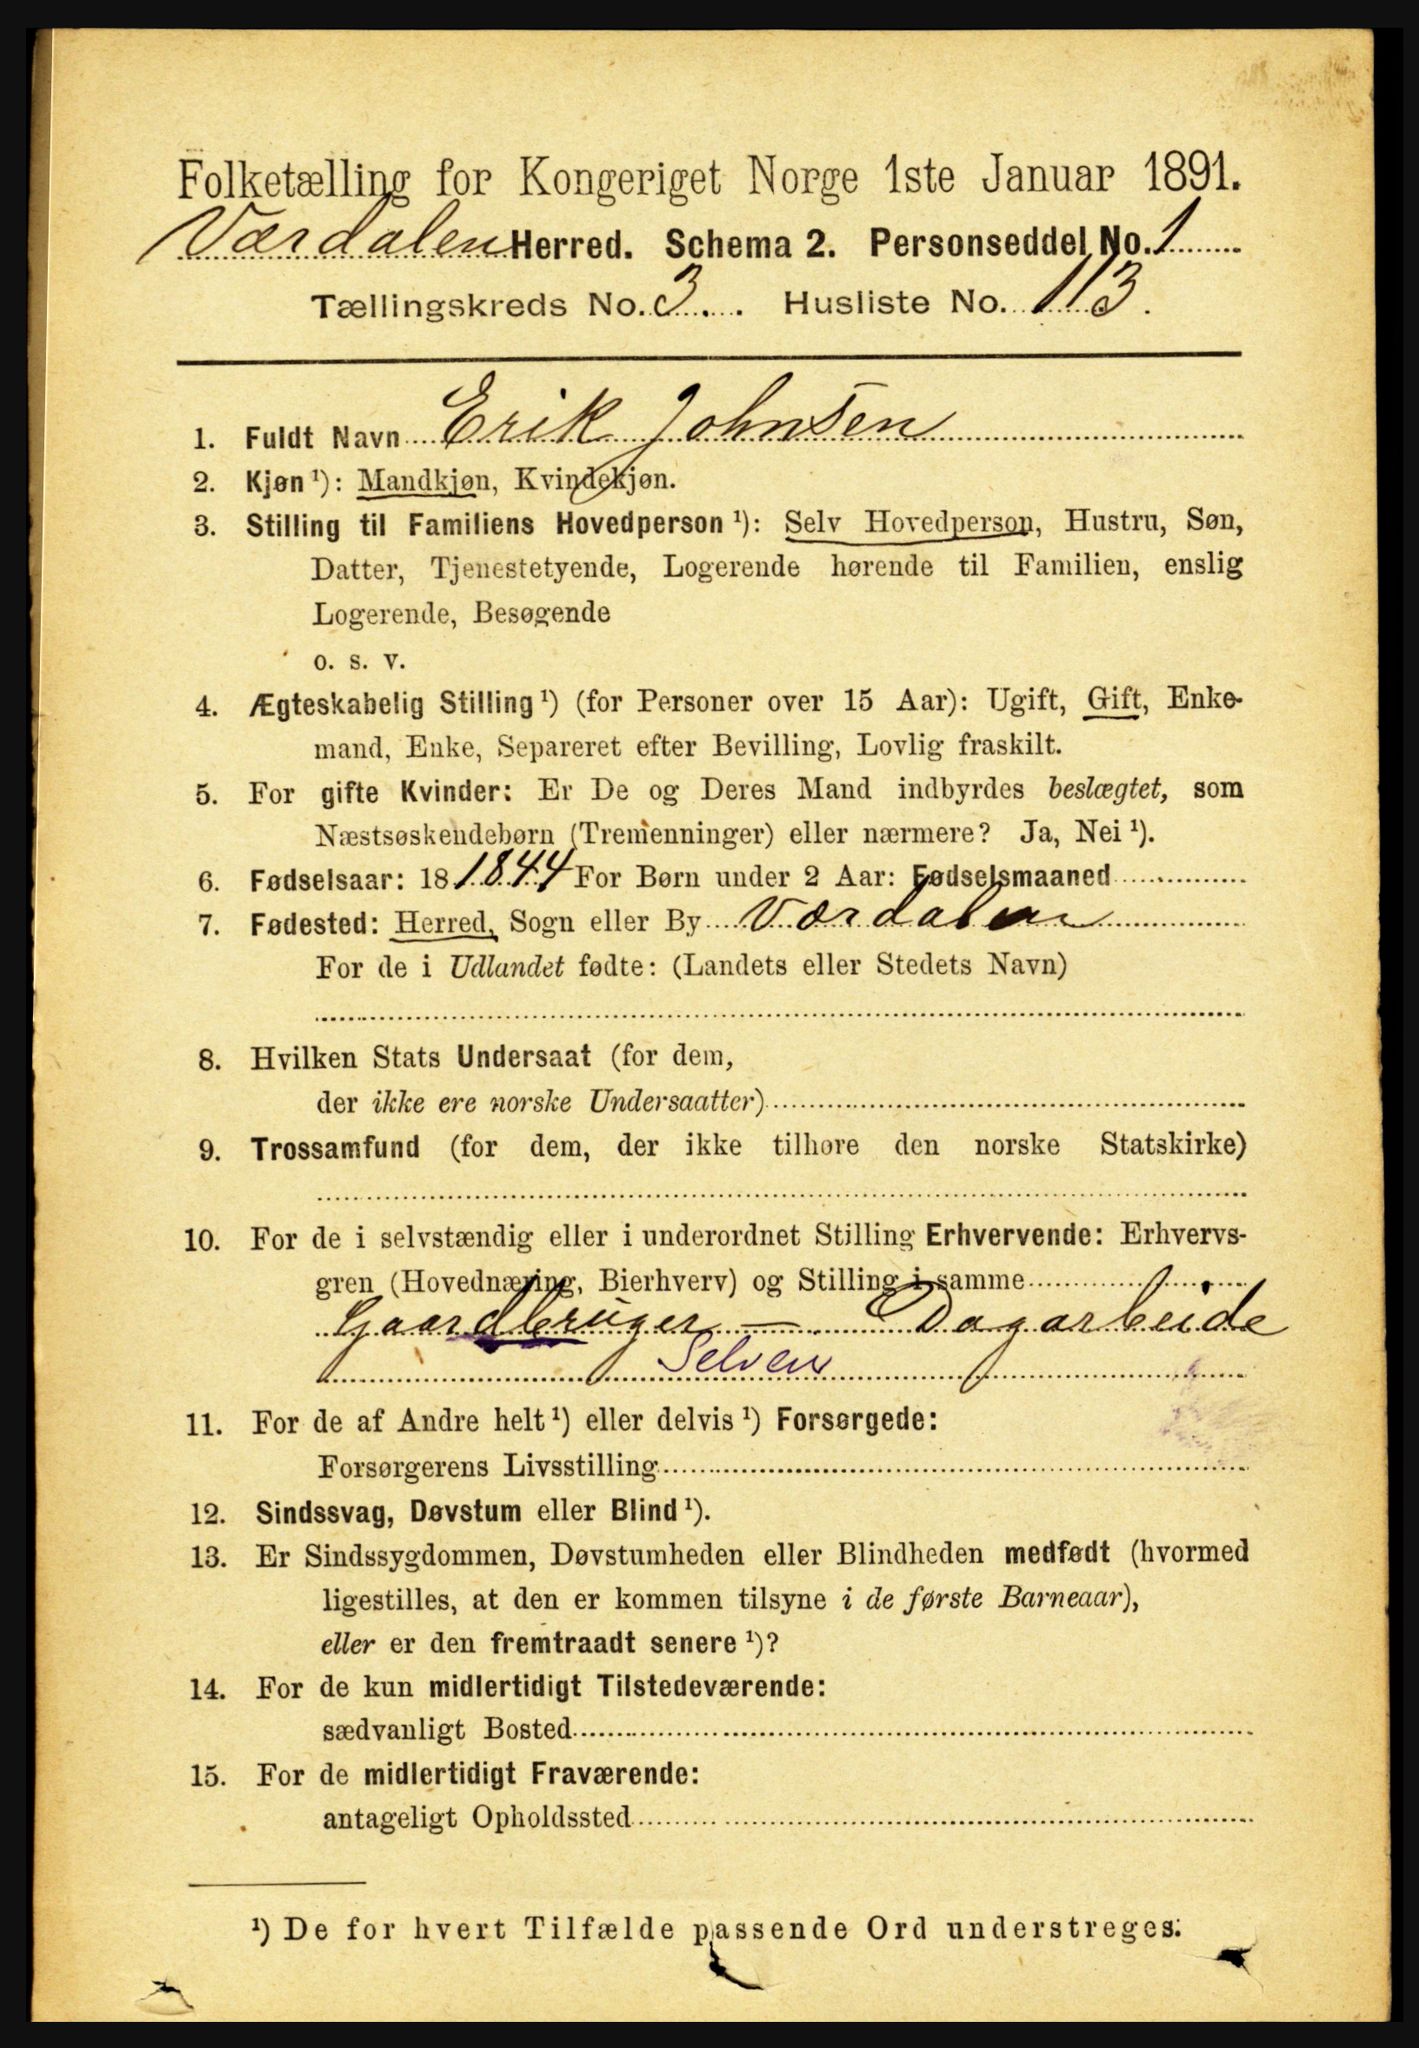 Folketælling for Kongeriget Norge 1ste Januar 1891.
Værdalen Herred. Schema 2. Personseddel No. 1
Tællingskreds No. 3. Husliste No. 113.
1. Fuldt Navn Erik Johnsen
2. Kjøn ¹): Mandkjøn, Kvindekjøn.
3. Stilling til Familiens Hovedperson ¹): Selv Hovedperson, Hustru, Søn,
Datter, Tjenestetyende, Logerende hørende til Familien, enslig
Logerende, Besøgende
o. s. v.
4. Ægteskabelig Stilling ¹) (for Personer over 15 Aar): Ugift, Gift, Enke-
mand, Enke, Separeret efter Bevilling, Lovlig fraskilt.
5. For gifte Kvinder: Er De og Deres Mand indbyrdes beslægtet, som
Næstsøskendebørn (Tremenninger) eller nærmere? Ja, Nei ¹).
6. Fødselsaar: 18 1844 For Børn under 2 Aar: Fødselsmaaned
7. Fødested: Herred, Sogn eller By Værdalen
For de i Udlandet fødte: (Landets eller Stedets Navn)
8. Hvilken Stats Undersaat (for dem,
der ikke ere norske Undersaatter)
9. Trossamfund (for dem, der ikke tilhøre den norske Statskirke)
10. For de i selvstændig eller i underordnet Stilling Erhvervende: Erhvervs-
gren (Hovednæring, Bierhverv) og Stilling i samme
Gaardbruger – Dagarbeide
Selveier
11. For de af Andre helt ¹) eller delvis ¹) Forsørgede:
Forsørgerens Livsstilling
12. Sindssvag, Døvstum eller Blind ¹).
13. Er Sindssygdommen, Døvstumheden eller Blindheden medfødt (hvormed
ligestilles, at den er kommen tilsyne i de første Barneaar),
eller er den fremtraadt senere ¹)?
14. For de kun midlertidigt Tilstedeværende:
sædvanligt Bosted
15. For de midlertidigt Fraværende:
antageligt Opholdssted
¹) De for hvert Tilfælde passende Ord understreges.